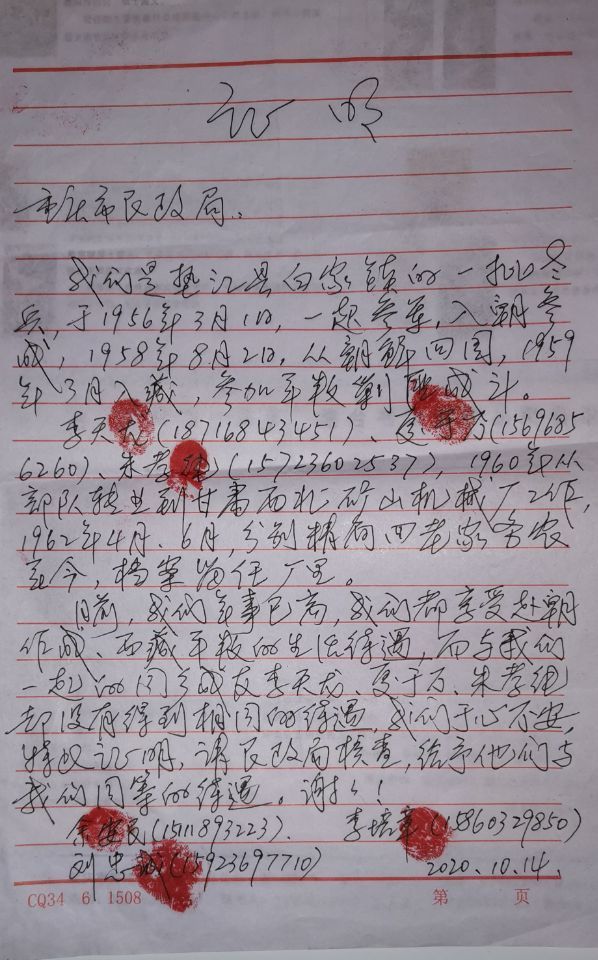 证明
重庆市民政局：
我们是垫江县白家镇的一批老
兵，于1956年3月1日，一起参军，入朝参
战，1958年8月2日，从朝鲜回国，1959
年3月入藏，参加平叛剿匪战斗。
李天龙(18716843451)、于万(1569685
6260)、朱孝(15723602537)，1960年从
部队转业到甘肃西北矿山机械厂工作，
1962年4月、6月，分别精简回老家务农
至今，档案留在厂里。
目前，我们年事已高，我们都享受赴朝
作战、西藏平叛的生活待遇，而与我们
一起的同乡战友李天龙、于万、朱孝
却没有得到相同的待遇，我们于心不安，
特此证明，请民政局核查，给予他们与
我们同等的待遇。谢谢！
民(15111893223). 李培章(15860329850)
刘忠诚(15923697710) 2020.10.14.
CQ34 6 1508 第 页